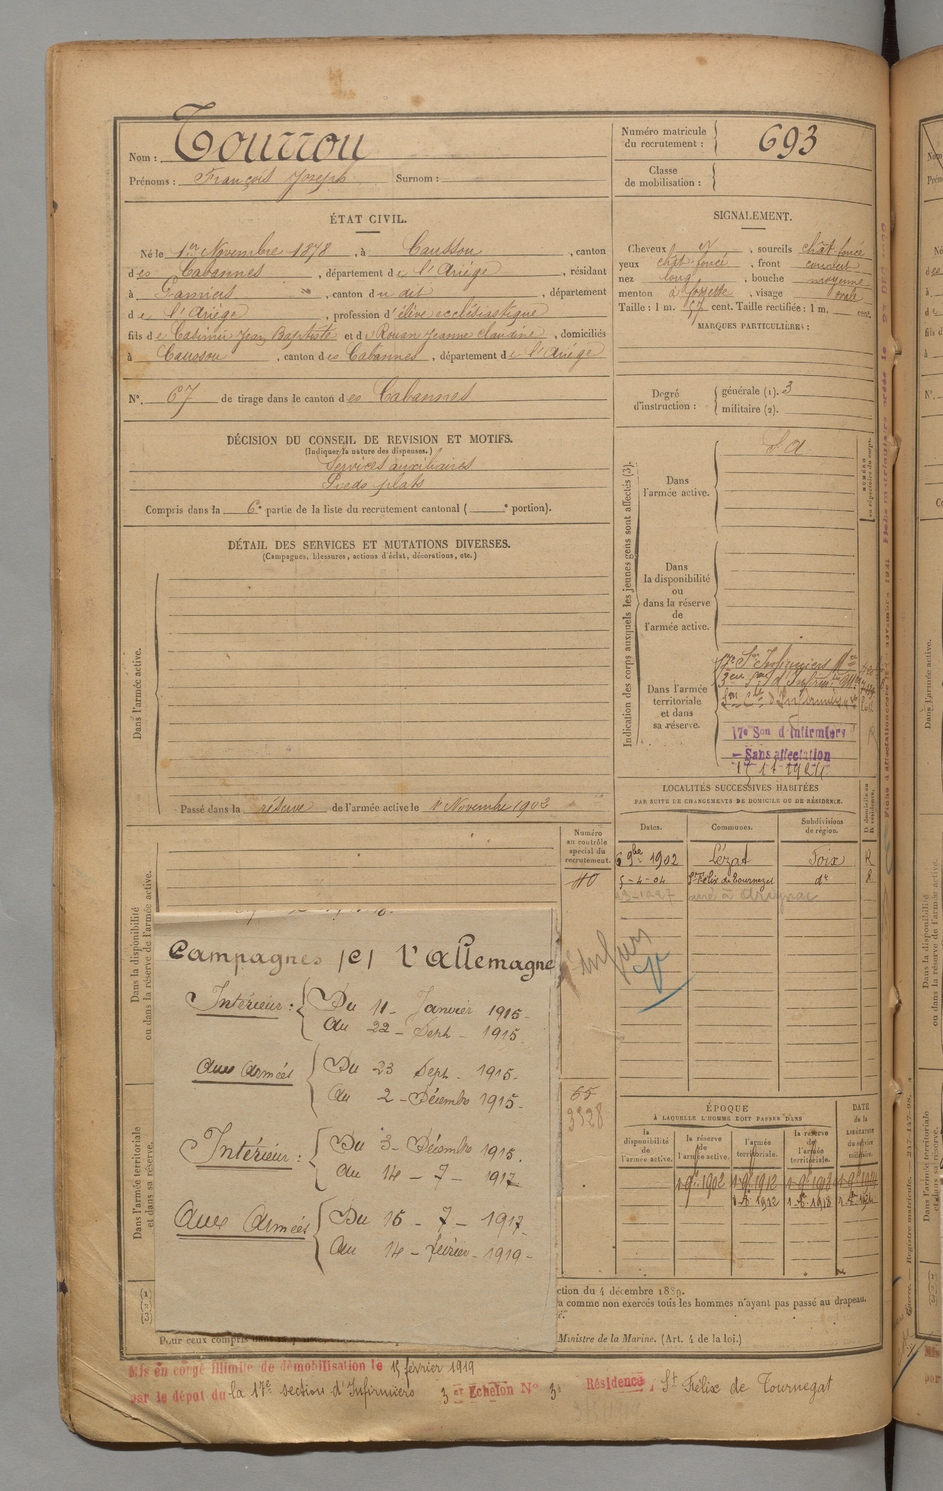 Nom : Tourrou
Prénoms : François Joseph Surnom :
Numéro matricule du recrutement : 693
Classe de mobilisation :
ÉTAT CIVIL.
Né le 1er Novembre 1878, à Caussou, canton
des Cabannes, département de l'Ariège, résidant
à Pamiers, canton du dit, département
de l'Ariège, profession d'élève ecclésiastique
fils de Casimir Jean Baptiste et de Rouan Jeanne Claudine, domiciliés
à Caussou, canton des Cabannes, département de l'Ariège
N°. 67 de tirage dans le canton des Cabannes
DÉCISION DU CONSEIL DE REVISION ET MOTIFS.
(Indiquer la nature des dispenses.)
Services auxiliaires
Pieds plats
Compris dans la 6e partie de la liste du recrutement cantonal ( e portion).
DÉTAIL DES SERVICES ET MUTATIONS DIVERSES.
(Campagnes, blessures, actions d'éclat, décorations, etc.)
Dans l'armée active.
Passé dans la réserve de l'armée active le 1 Novembre 1902
SIGNALEMENT.
Cheveux et, sourcils chât. foncé
yeux chât. foncé, front couvert
nez long, bouche moyenne
menton à fossette, visage ovale
Taille : 1 m. cent. Taille rectifiée : 1 m. cent.
MARQUES PARTICULIÈRES :
Degré d'instruction : générale (1). 3
militaire (2).
Indication des corps auxquels les jeunes gens sont affectés (3).
Dans l'armée active.
S. A
NUMÉRO au répertoire du corps.
Dans la disponibilité ou dans la réserve de l'armée active.
Dans l'armée territoriale et dans sa réserve.
17e Son d'Infirmiers
Sans affectation
LOCALITÉS SUCCESSIVES HABITÉES
PAR SUITE DE CHANGEMENTS DE DOMICILE OU DE RÉSIDENCE.
Dates. Communes. Subdivisions de région. D domicile ou R résidence.
6 9bre 1902 Lézat Foix R
5-4-04 St Félix de Tournegat do R
Numéro au contrôle spécial du recrutement.
40
Dans la disponibilité ou dans la réserve de l'armée active.
Campagnes [c] l'Allemagne
Intérieur : Du 11 Janvier 1915
au 22 Sept 1915
aux armées Du 23 Sept. 1915
au 2 Décembre 1915
Intérieur : Du 3 Décembre 1915
au 14 - 7 - 1917
aux armées Du 15 - 7 - 1917
au 14 - février - 1919
65
3328
Dans l'armée territoriale et dans sa réserve.
ÉPOQUE
À LAQUELLE L'HOMME DOIT PASSER DANS
la disponibilité de l'armée active. la réserve de l'armée active. l'armée territoriale. la réserve de l'armée territoriale. DATE de la LIBÉRATION du service militaire.
1 9e 1902 1 9e 1912
(1)
(2)
(3)
ction du 4 décembre 1889.
a comme non exercés tous les hommes n'ayant pas passé au drapeau.
Pour ceux compris dans
Ministre de la Marine. (Art. 4 de la loi.)
Mis en congé illimité de démobilisation le 15 février 1919
par le dépôt du la 17e section d'Infirmiers 3 er Echelon N° 3 Résidence, St Félix de Tournegat